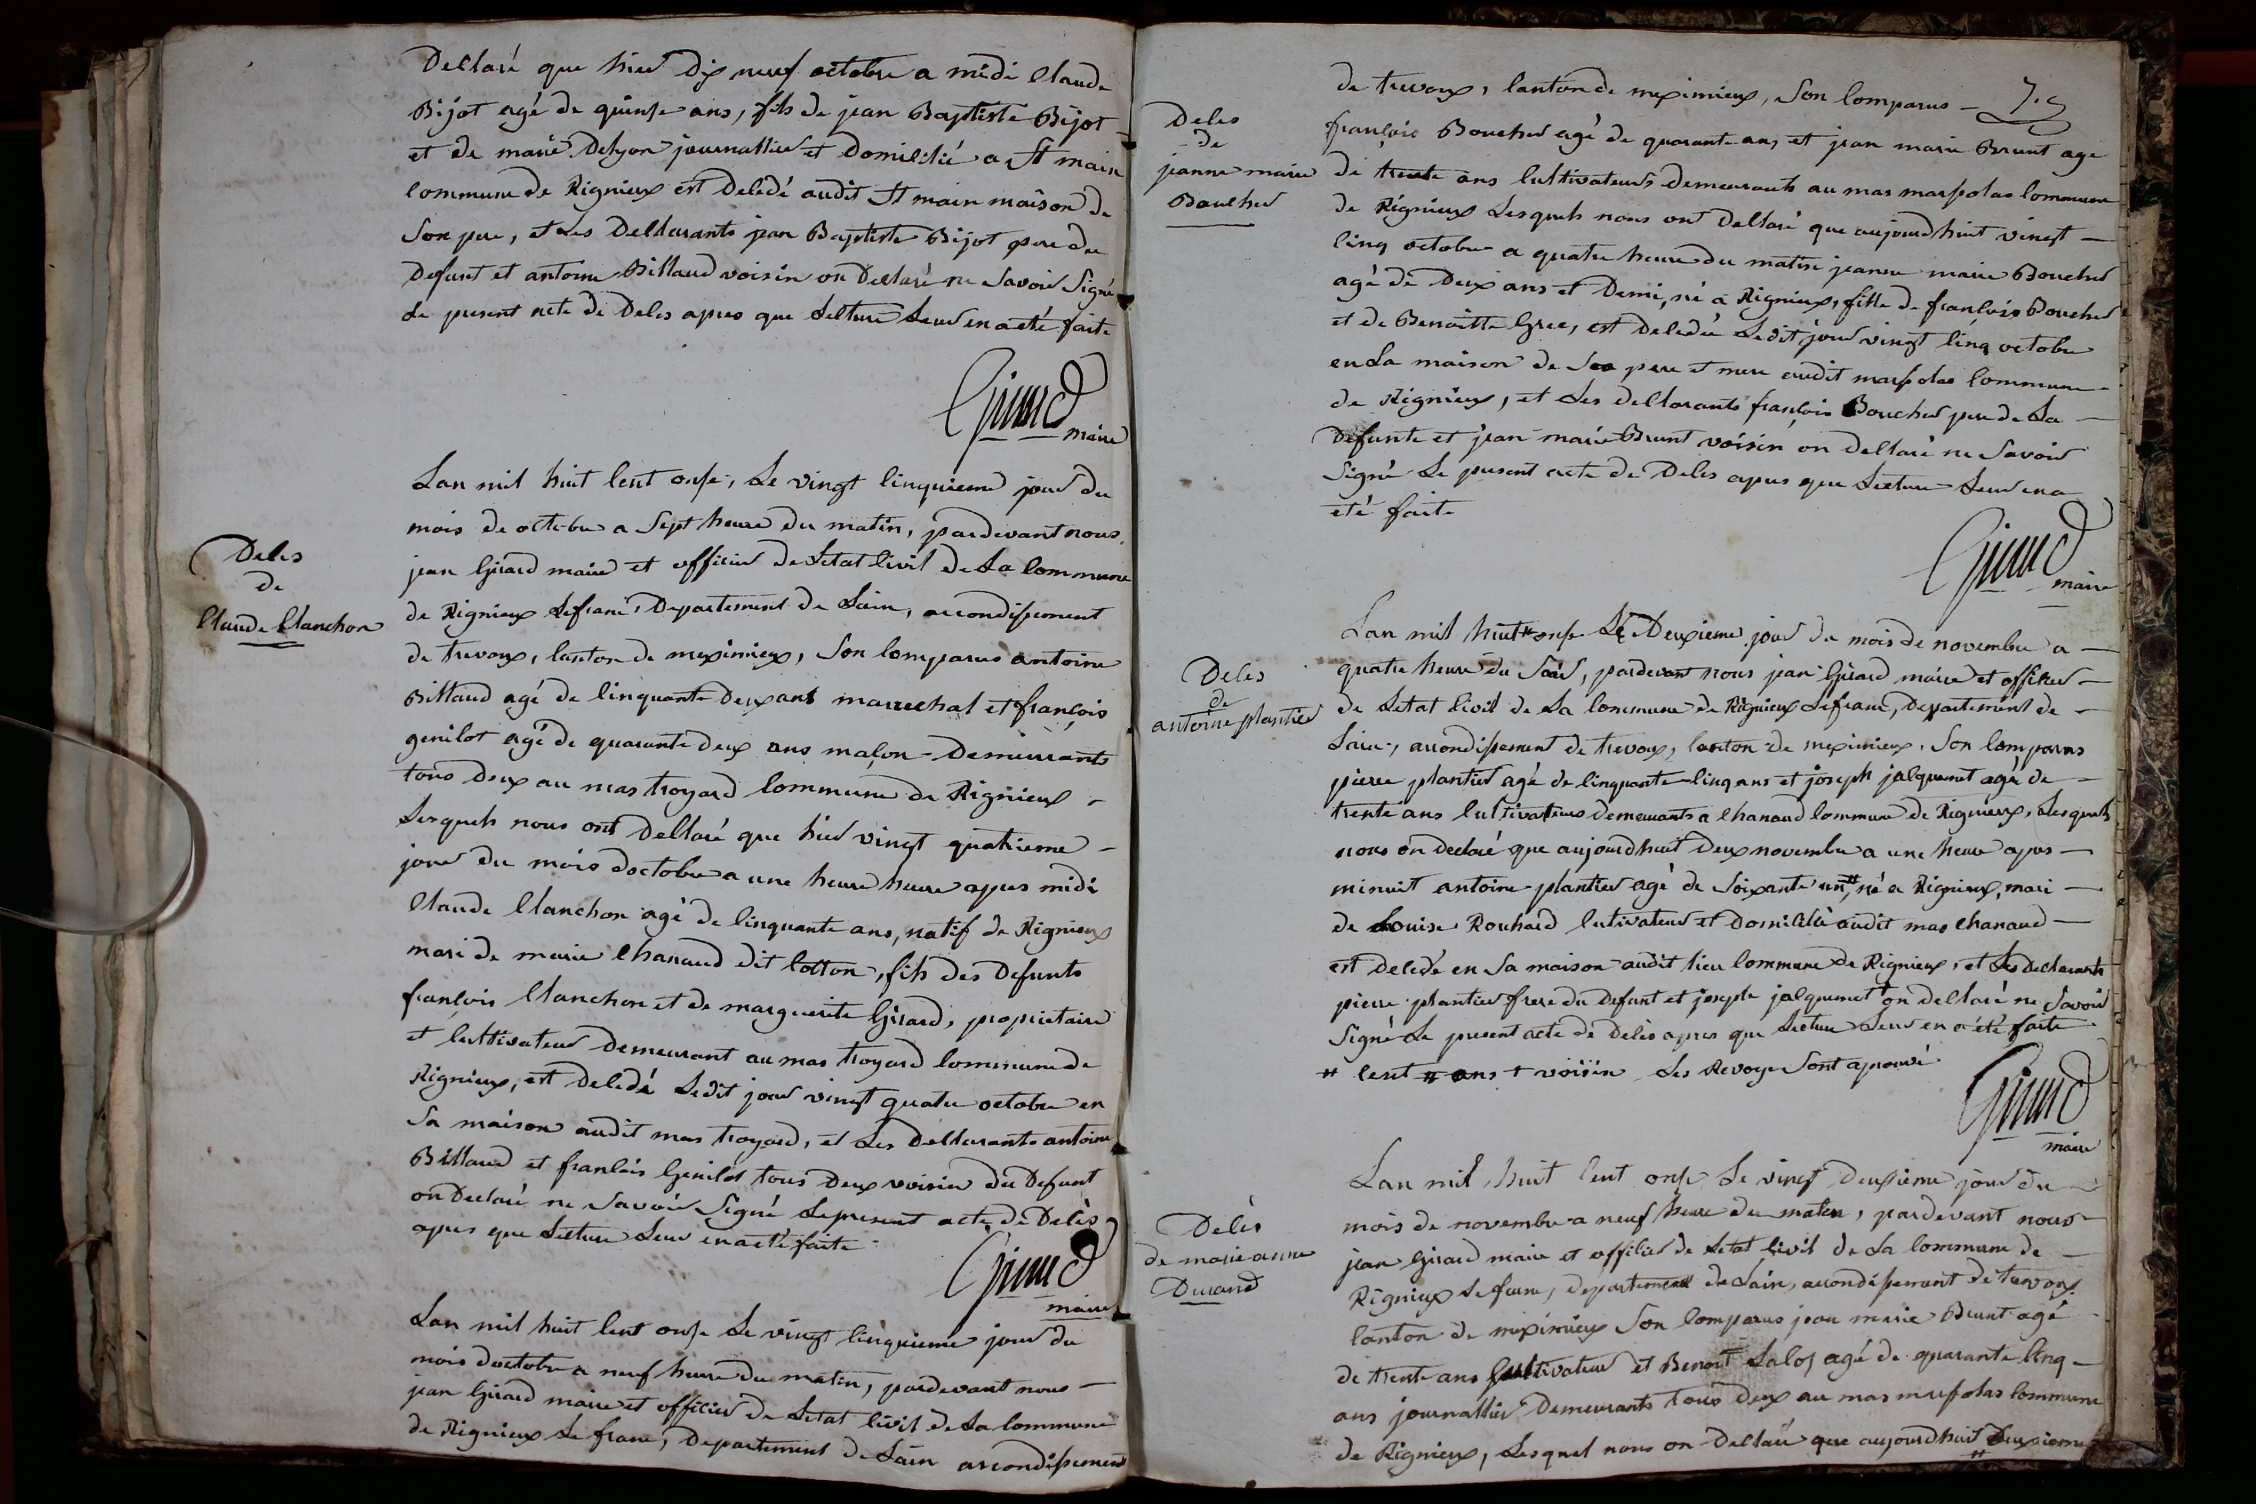 Declaré que hier dix neuf octobre a midi Claude
Bijot agé de quinse ans, fils de jean Baptiste Bijot
et de marie journallier et Domicilié a St main
commune de Rignieux est Decedé audit St main maison de
Son pere, et Les Declarants jean Baptiste Bijot pere du
Defunt et antoine Billaud voisin on Declaré ne Savoir Signé
Le present acte de Deces apres que Lecture Leur en a eté faite
Girard
maire
Deces
de
Claude Clanchon
Lan mil huit cent onse, Le vingt cinquieme jour du
mois de octobre a Sept heure du matin, pardevant nous
jean Girard maire et officier de Letat civil de La commune
de Rignieux Lefranc, Departement de Lain, arrondissement
de trevoux, canton de meximieux, Son comparus antoine
Billaud agé de cinquante Deux ans marechal et françois
genilot agé de quarante deux ans maçon Demeurants
tous deux au mas troyard commune de Rignieux -
Lesquels nous ont Declaré que hier vingt quatrieme -
jour du mois doctobre a une heure heure apres midi
Claude Clanchon agé de cinquante ans, natif de Rignieux
mari de marie chanaud dit cotton, fils des Defunts
françois Clanchon et de marguerite Girard, proprietaire
et cultivateur Demeurant au mas troyard commune de
Rignieux, est Decedé Ledit jour vingt quatre octobre en
Sa maison audit mas troyard, et Les Declarants antoine
Billaud et françois Genilot tous deux voisin du Defunt
on Declaré ne Savoir Signé Lepresent acte de Decès
apres que Lecture Leur en a eté faite
Girard
maire
Lan mil huit cent onse Le vingt cinquieme jour du
mois doctobre a neuf heure du matin, pardevant nous -
jean Girard maire et officier de Letat civil de La commune
de Rignieux Le franc, Departement de Lain arrondissement
de trevoux, canton de meximieux, Son comparus -
Deces
de
jeanne marie
Boucher
françois Boucher agé de quarante ans, et jean marie Brunt agé
de trente ans cultivateurs demeurants au mas marsolas commune
de Rignieux Lesquels nous ont Declaré que aujourdhuit vingt -
cinq octobre a quatre heure du matin jeanne marie Boucher
agé de Deux ans et Demi, né a Rignieux, fille de françois Boucher
et de Benoitte est Decedée Ledit jour vingt cinq octobre
en La maison de Son pere et mere audit marsolas commune
de Rignieux, et Les declarants françois Boucher pere de La -
Defunte et jean marie Brunt voisin on declaré ne Savoir
Signé Le present acte de Deces apres que Lecture Leur en a
eté faite
Girard
maire
Deces
de
antoine plantier
Lan mil huit # onse Le Deuxieme jour du mois de novembre a -
quatre heure du Soir, pardevant nous jean Girard maire et officier -
de Letat civil de La commune de Rignieux Lefranc, Departement de -
Lain, arrondissement de trevoux, canton de meximieux, Son comparus
pierre plantier agé de cinquante cinq ans et joseph jacquemet agé de -
trente ans cultivateurs demeurants a chanaud commune de Rignieux, Lesquels
nous on declaré que aujourdhuit Deux novembre a une heure apres -
minuit antoine plantier agé de Soixante un #, né a Rignieux, mari -
de Louise Rouhard cultivateur et domicilié audit mas chanaud -
est decedé en Sa maison audit lieu commune de Rignieux, et Les Declarants
pierre plantier frere du Defunt et joseph jacquemet + on declaré ne Savoir
Signé Le present acte de Decès apres que Lecture Leur en a eté faite
# cent # ans + voisin Les Revoye Sont aprouvé
Girard
maire
Decès
de marie anne
Durand
Lan mil huit cent onse Le vingt deuxieme jour du -
mois de novembre a neuf heure du matin, pardevant nous
jean Girard maire et officier de Letat civil de La commune de -
Rignieux Le franc, departement de Lain, arrondissement de trevoux
canton de meximieux Son comparus jean marie Brunt agé
de trente ans cultivateur et Benoit agé de quarante cinq -
ans journallier Demeurants tous deux au mas marsolas commune
de Rignieux, Lesquel nous on Declaré que aujourdhuit Deuxieme